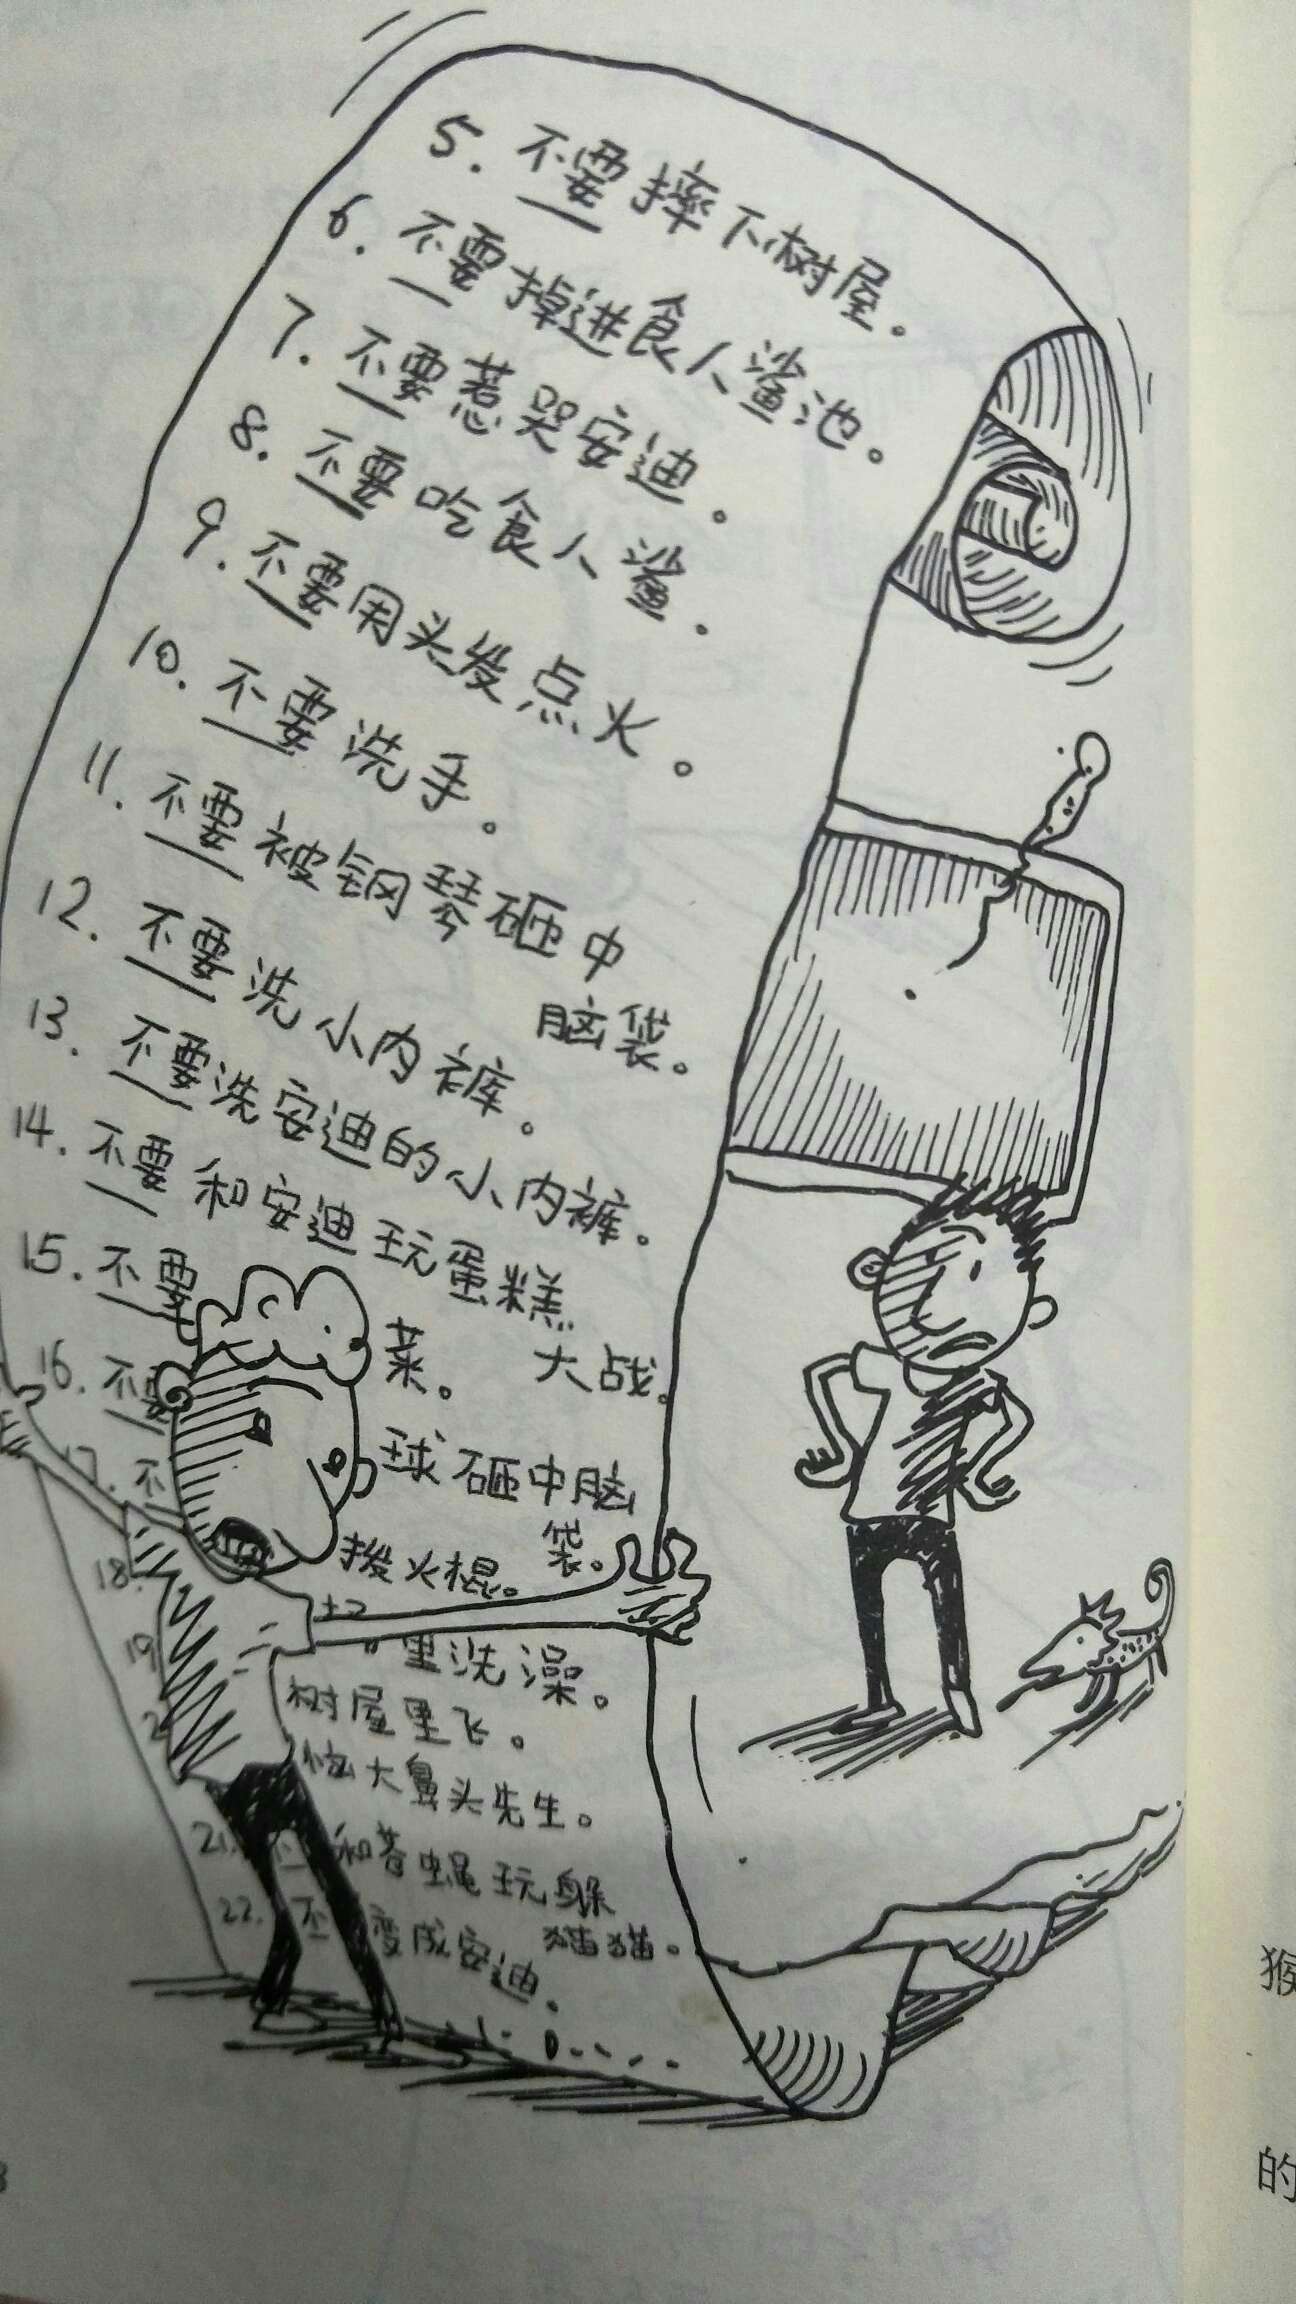 5. 不要摔下树屋。
6. 不要掉进食人鲨池。
7. 不要惹哭安迪。
8. 不要吃食人鲨。
9. 不要用头发点火。
10. 不要洗手。
11. 不要被钢琴砸中
脑袋。
12. 不要洗小内裤。
13. 不要洗安迪的小内裤。
14. 不要和安迪玩蛋糕
大战。
15. 不要 菜。
16. 不要 球砸中脑
袋。
17. 不 拨火棍。
18. 里洗澡。
19 树屋里飞。
2 恼大鼻头先生。
21. 不 和苍蝇玩躲
猫猫。
22. 不 变成安迪。
猴
的